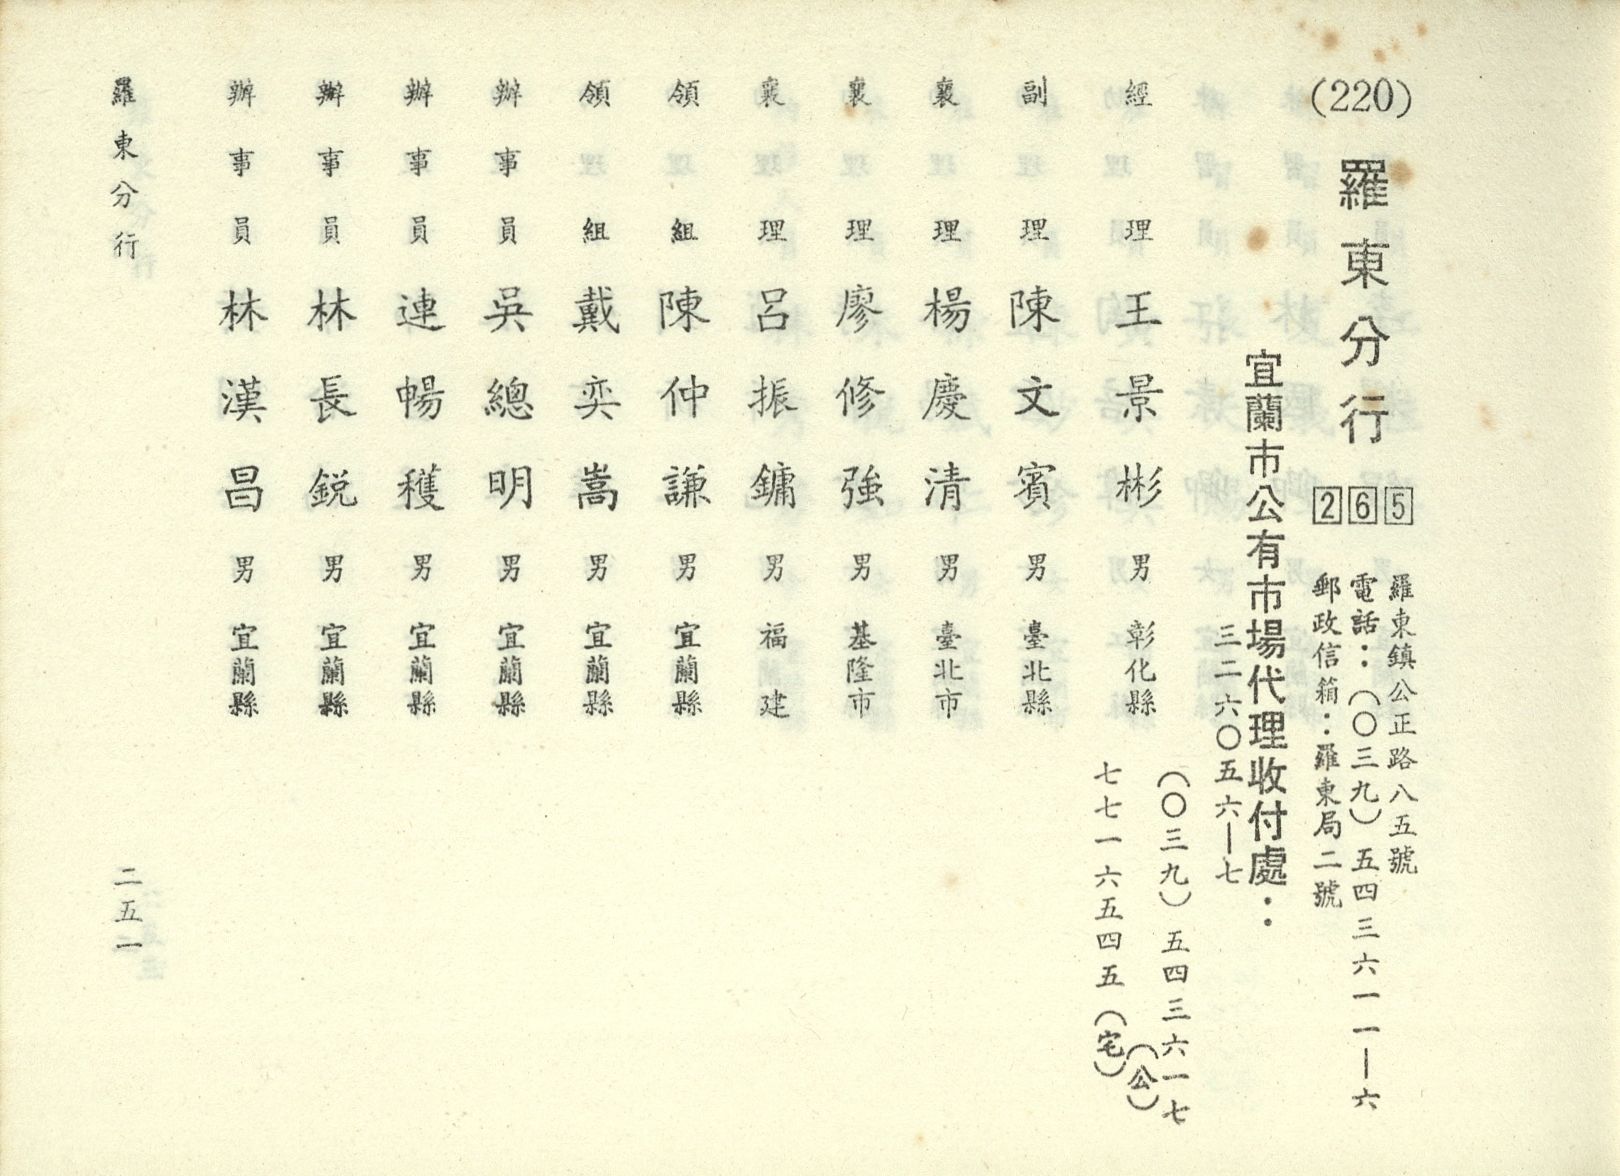 (220) 羅東分行 265
羅東鎮公正路八五號
電話：（〇三九）五四三六一一—六
郵政信箱：羅東局二號
宜蘭市公有市場代理收付處：
三二六〇五六—七
經理 王景彬 男 彰化縣 （〇三九）五四三六一七（公）
七七一六五四五（宅）
副理 陳文賓 男 臺北縣
襄理 楊慶清 男 臺北市
襄理 廖修強 男 基隆市
襄理 呂振鏞 男 福建
領組 陳仲謙 男 宜蘭縣
領組 戴奕嵩 男 宜蘭縣
辦事員 吳總明 男 宜蘭縣
辦事員 連暢穫 男 宜蘭縣
辦事員 林長銳 男 宜蘭縣
辦事員 林漢昌 男 宜蘭縣
羅東分行
二五一